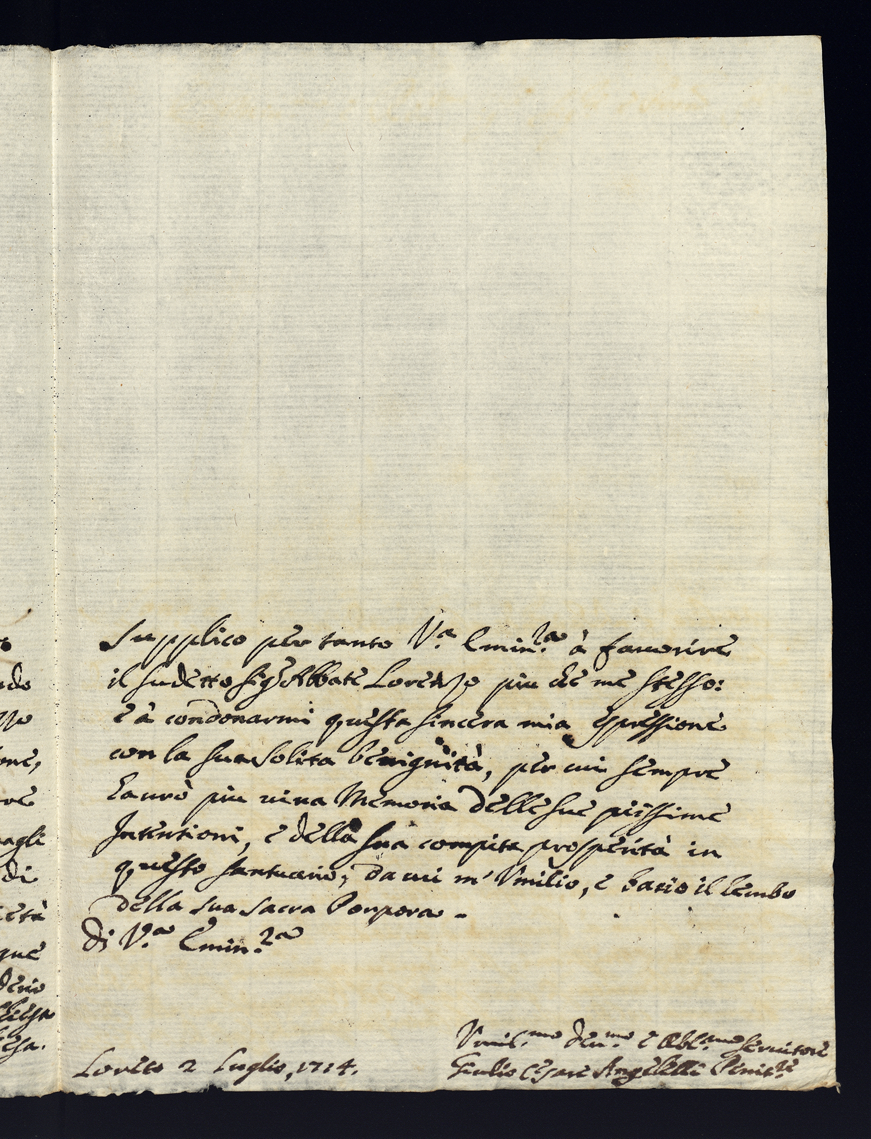 Supplico per tanto V.ª Emin.za à favorire
il sudetto Sigr Abbate Lorenzo piu che me stesso:
e à condonarmi questa sincera mia espressione
con la sua solita benignità, per cui sempre
haurò piu viva Memoria delle sue piissime
Intentioni, e della sua compita prosperità in
questo santuario; da cui m' Umilio, e bacio il lembo
della sua sacra Porpora.
di V.ª Emin.za
Umil.mo deu.mo e Obl.mo servitore
Giulio Cesare Angelelli Penit.re
Loreto 2 Luglio, 1714.
ndo
me,
re
agli
di
ietà
que